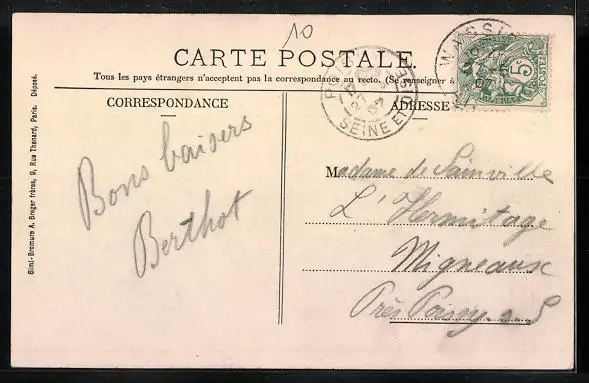 10
CARTE POSTALE.
Tous les pays étrangers n'acceptent pas la correspondance au recto. (Se renseigner à
CORRESPONDANCE
ADRESSE
Simi-Bromure A. Breger frères, 9, Rue Thenard, Paris. Déposé.
Bons baisers
Berthot
Madame de Sainville
L'Hermitage
Migneaux
Près Poissy
SEINE ET OISE
WASSI
5
POSTES